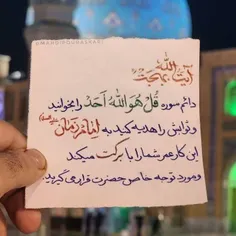 آیت الله
بهجت
دائم سوره قُل هُوَ اللهُ اَحَدٌ را بخوانید
و ثوابش را هدیه کنید به امام زمان
این کار عمر شما را با برکت میکند
و مورد توجه خاص حضرت قرار می گیرید.